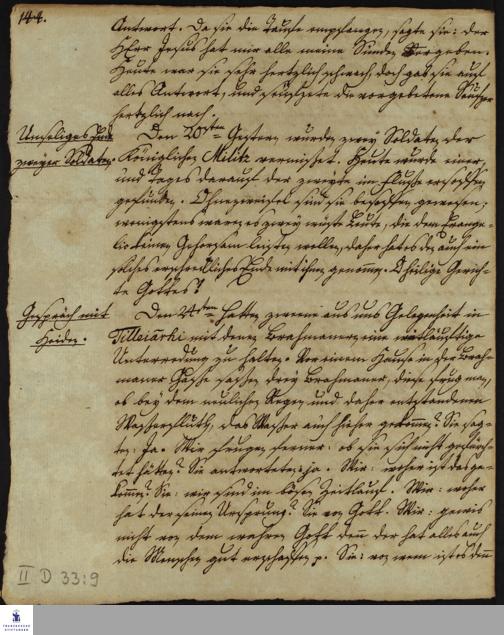 144.
Antwort. Da sie die Taufe empfangen, sagte sie: der
HErr Jesus hat mir alle meine Sünden vergeben.
Heute war sie sehr hertzlich schwach, doch gab sie auf
alles Antwort, und seufzete die vorgebetene Seufzer
hertzlich nach.
Unseliges Ende
zweyer Soldaten.
Den 20sten Gestern wurden zwey Soldaten der
Königlichen Militz vermisset. Heute wurde einer,
und Tages darauf der zweyte im Fluße ersoffen
gefunden. Ohnezweifel sind sie besoffen gewesen;
wenigstens waren es zwey wüste Leute, die dem Evange-
lio keinen Gehorsam leisten wollen, daher hat es da auch ein
solches erschreckliches Ende mit ihnen genommen. O heilige Gerich-
te Gottes!
Gespräch mit
Heiden.
Den hatten zweene aus uns Gelegenheit in
Tilleiarhi mit denen Brahmanern eine weitläuftige
Unterredung zu halten. Vor einem Hause in der Brah-
maner Gasse sassen drey Brahmaner, diese frug man,
ob bey dem neulichen Regen und daher entstandenen
Wasserfluth, das Wasser auch hieher gekommen? Sie sag-
ten: Ja. Wir frugen ferner: ob sie sich nicht gefürch-
tet hätten? Sie antworteten: ja. Wir: woher ist das ge-
kommen? Sie: wir sind im bösen Zeitlauf. Wir: woher
hat der seinen Ursprung? Sie von Gott. Wir: gewis
nicht von dem wahren Gott denn der hat alles auch
die Menschen gut erschaffen p. Sie: von wem ist es denn
II D 33:9
FRANCKESCHE
STIFTUNGEN